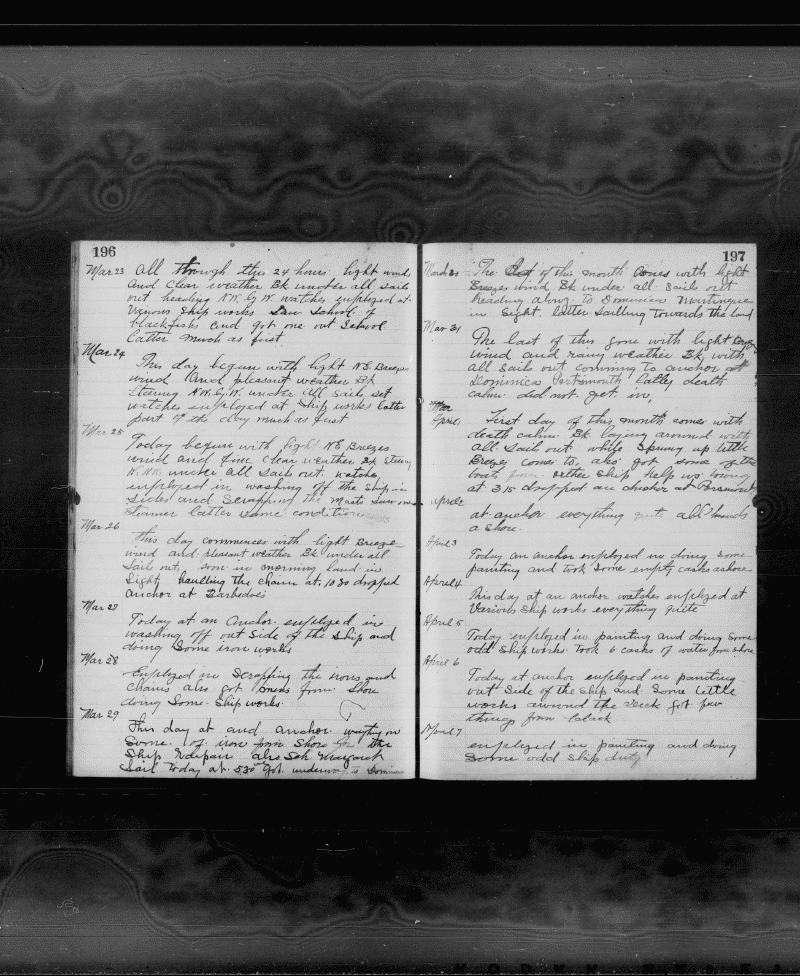 196
Mar 23 All through this 24 hours light wind
and Clear weather Bk under all sails
out heading N.W. by W. watches employed at
Various Ship works Saw School of
blackfish and got one out School
latter much as first
Mar 24
This day begun with light N.E. Breezes
wind and pleasant weather Bk
Stering N.W. by W. under all Sails set
watches employed at Ship works latter
part of the day much as first
Mar 25
Today begun with light N.E. Breezes
wind and fine clear weather Bk Stering
under all Sails out. watches
employed in washing off the Ship
Sides and Scrapping the Masts Saw one
Steamer latter same condition
Mar 26
This day commences with light Breeze
wind and pleasant weather Bk. under all
Sails out, in morning land in
Sight, haulling the chains at 10 30 dropped
Anchor at Barbados
Mar 27
Today at an Anchor employed in
washing off out Side of the Ship and
doing Some iron works
Mar 28
Employed in Scrapping the irons and
Chains also got from Shore
doing Some Ship works
Mar 29
This day at and anchor waiting on
Some of iron from Shore the
Ship also Sch Margaret
Sail Today at 5.30 got underway to
197
The of this month comes with light
Breezes wind Bk under all Sails out
heading along to Dominica Martinique
in Sight, latter Sailling towards the land
Mar 31
The last of this gone with light Breeze
wind and rany weather Bk, with
all Sails out comming to anchor at
Dominica Portsmouth latley death
calm did not got in,
Mar
April 1 First day of this month comes with
death calm Bk laying around with
all Sails out. while Sprung up little
Breeze comes to, also got some of the
boats from other Ship help us towing
at 3 15 dropped an anchor at
April 2
at anchor everything quite all hands
a Shore.
April 3
Today an anchor employed in doing some
painting and took Some empty casks ashore
April 4
This day at an anchor watches employed at
Various Ship works everything quite
April 5
Today employed in painting and doing Some
odd Ship works Took 6 casks of water from Shore
April 6
Today at anchor employed in painting
out Side of the Ship and Some little
works around the Deck got few
things from black
April 7
employed in painting and doing
Some odd Ship duty